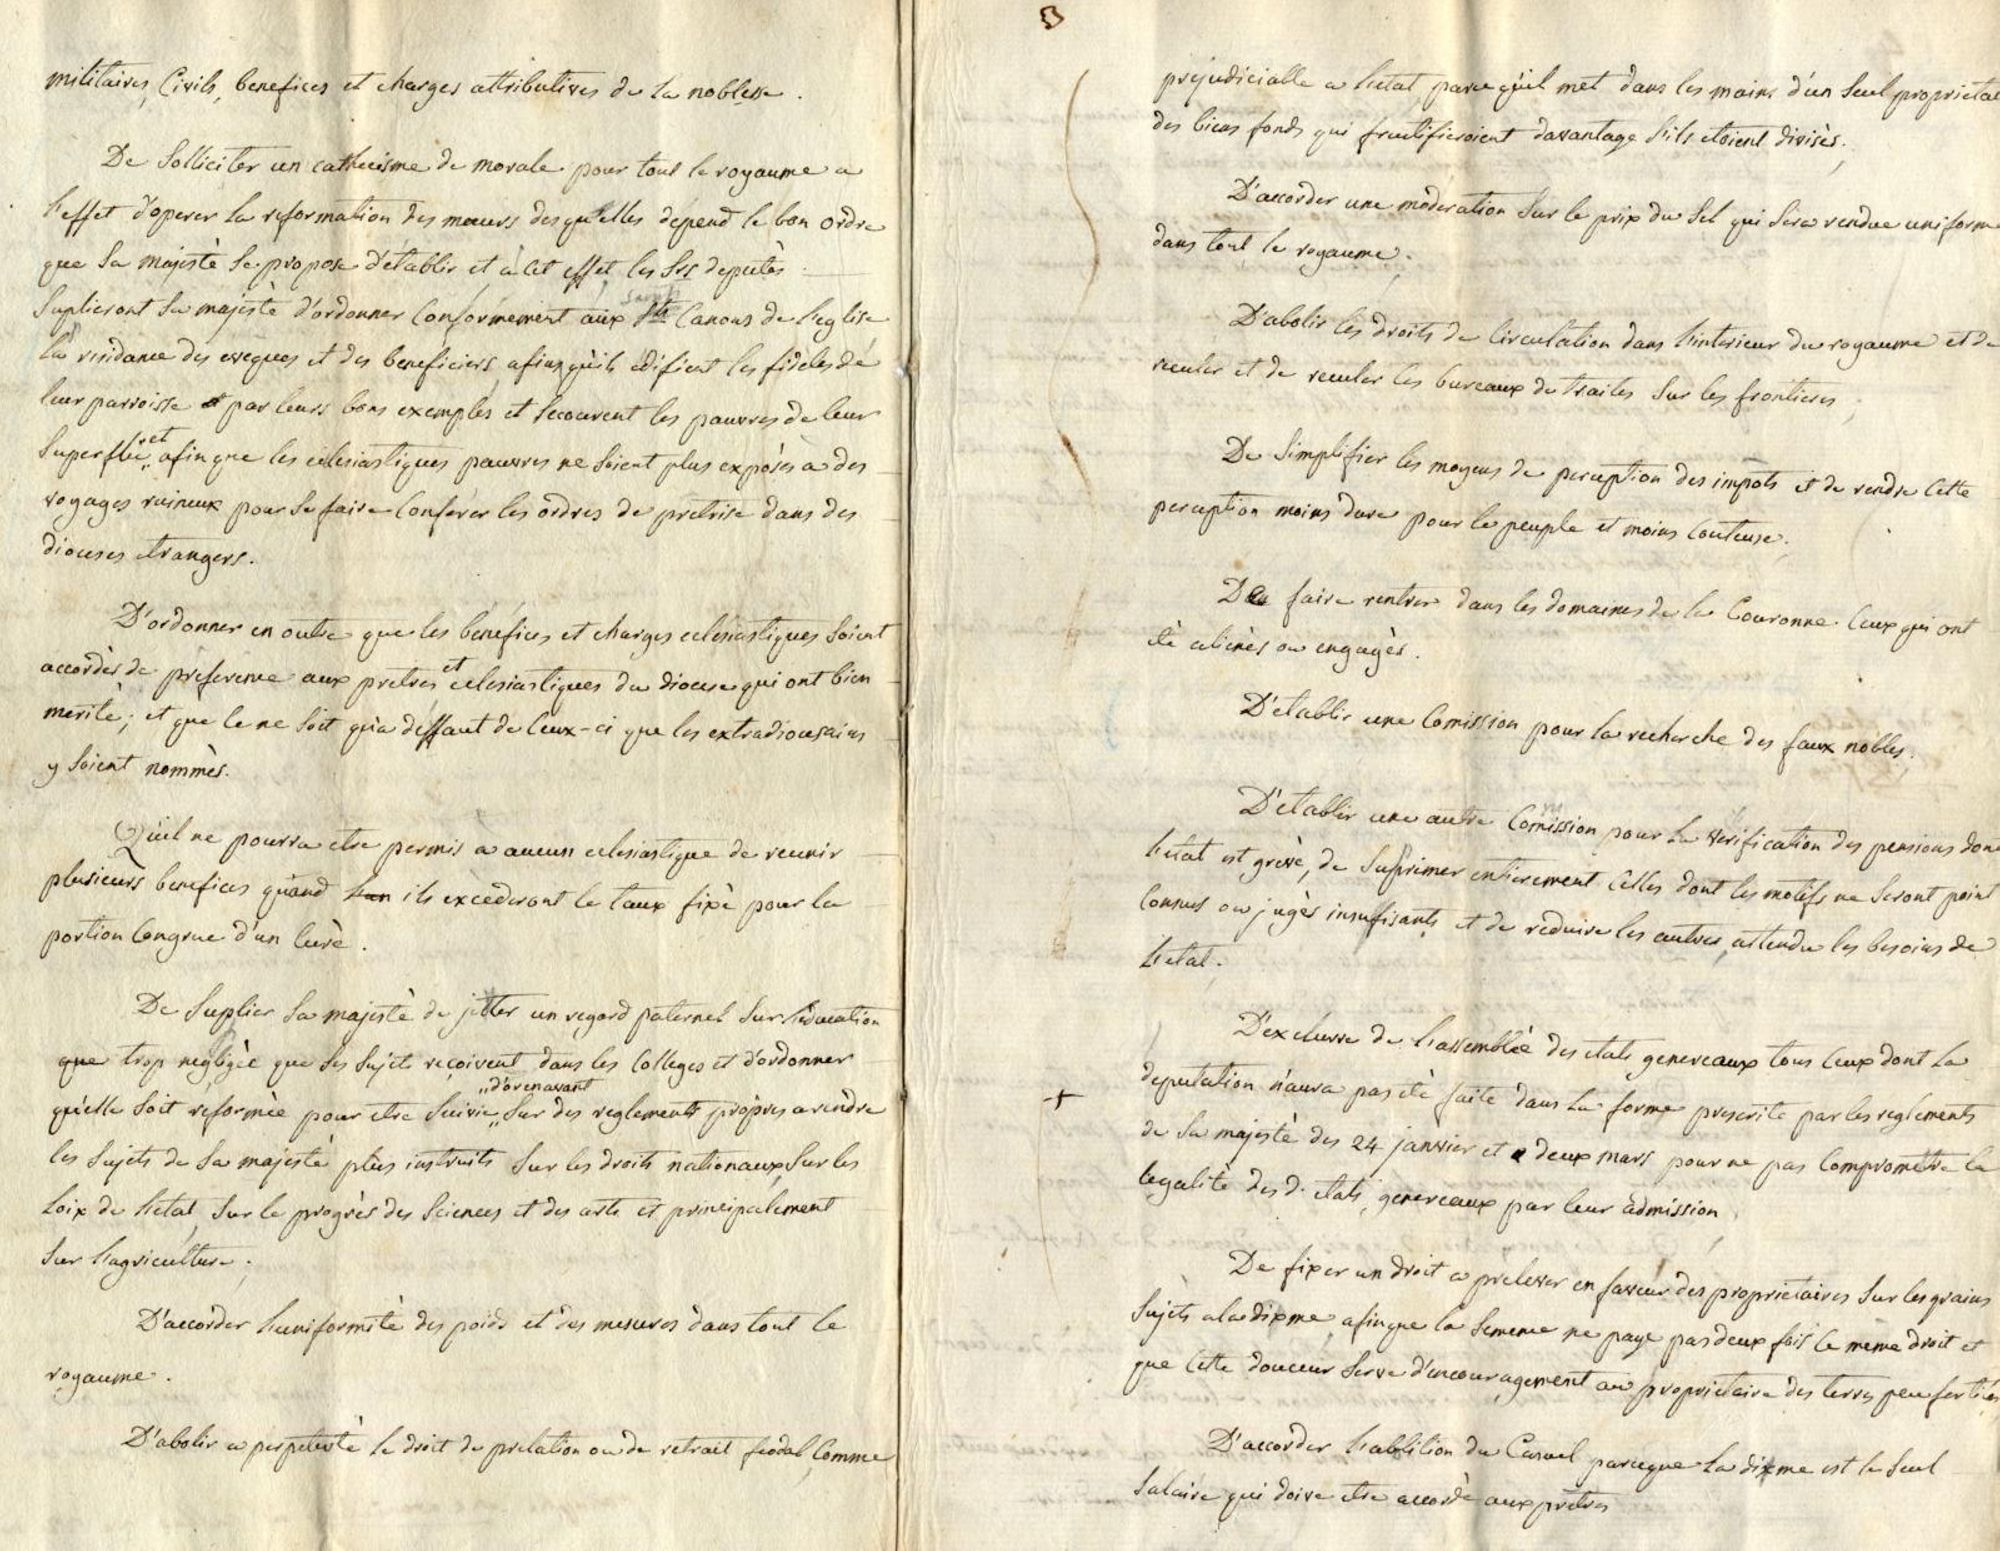 militaires, Civils, benefices et charges attributives de la noblesse.
De Solliciter un cathecisme de morale pour tout le royaume a
l'effet d'operer la reformation des mœurs desqu'elles depend le bon ordre
que Sa majesté Se propose d'établir et à cet effet les Srs deputés
Suplieront Sa majesté d'ordonner Conformement aux Sts Canons de l'eglise
la residance des eveques et des beneficiers, afinqu'ils édifient les fideles de
leur parroisse par leurs bons exemples et Secourent les pauvres de leur
Superflu, et afinque les eclesiastiques pauvres ne Soient plus exposés a des
voyages ruineux pour Se faire Conférer les ordres de pretrise dans des
dioceses etrangers.
D'ordonner en outre que les bénéfices et charges eclesiastiques Soient
accordés de preference aux pretres et eclesiastiques du diocese qui ont bien
merité; et que ce ne Soit qu'a deffaut de Ceux-ci que les extradiocesains
y Soient nommés.
Qu'il ne pourra etre permis a aucun eclesiastique de reunir
plusieurs benefices quand ils excederont le taux fixé pour la
portion Congrue d'un Curé.
De Suplier Sa majesté de jetter un regard paternel Sur l'éducation
que trop négligée que Ses Sujets reçoivent dans les Colleges et d'ordonner
qu'elle Soit reformée pour etre Suivie d'orenavant Sur des reglements propres a rendre
les Sujets de Sa majesté plus instruits Sur les droits nationaux, Sur les
Loix de l'etat, Sur le progrès des Sciences et des arts et principalement
Sur l'agriculture.
D'accorder l'uniformité des poids et des mesures dans tout le
royaume.
D'abolir a perpetuité le droit de prelation ou de retrait feodal, Comme
3
prejudiciable a l'etat, parcequ'il met dans les mains d'un Seul proprietai
des biens fonds qui fructifieroient davantage S'ils etoient divisés.
D'accorder une moderation Sur le prix du Sel qui Sera rendue uniforme
dans tout le royaume.
D'abolir les droits de Circulation dans l'interieur du royaume et de
reculer et de reculer les bureaux de traites Sur les frontieres
De Simplifier les moyens de perception des impots et de rendre Cette
perception moins dure pour le peuple et moins Couteuse.
De faire rentrer dans les domaines de la Couronne Ceux qui ont
été alienés ou engagés.
D'etablir une Comission pour la recherche des faux nobles.
D'etablir une autre Comission pour la verification des pensions dont
l'etat est grevé, de Suprimer entierement Celles dont les motifs ne Seront point
Connus ou jugés insufisants et de reduire les autres, attendu les besoins de
l'etat.
D'exclurre de l'assemblée des etats genereaux tous Ceux dont la
+ deputation n'aura pas été faite dans la forme prescrite par les reglements
de Sa majesté des 24 janvier et deux mars pour ne pas Compromettre la
legalité des d. etats genereaux par leur admission
De fixer un droit a prelever en faveur des proprietaires Sur les grains
Sujets a la dixme, afinque la Semence ne paye pas deux fois le meme droit et
que Cette douceur Serve d'encouragement au proprietaire des terres peu fertiles
D'accorder l'abolition du Casuel parceque la dixme est le Seul
Salaire qui doive etre accordé aux pretres